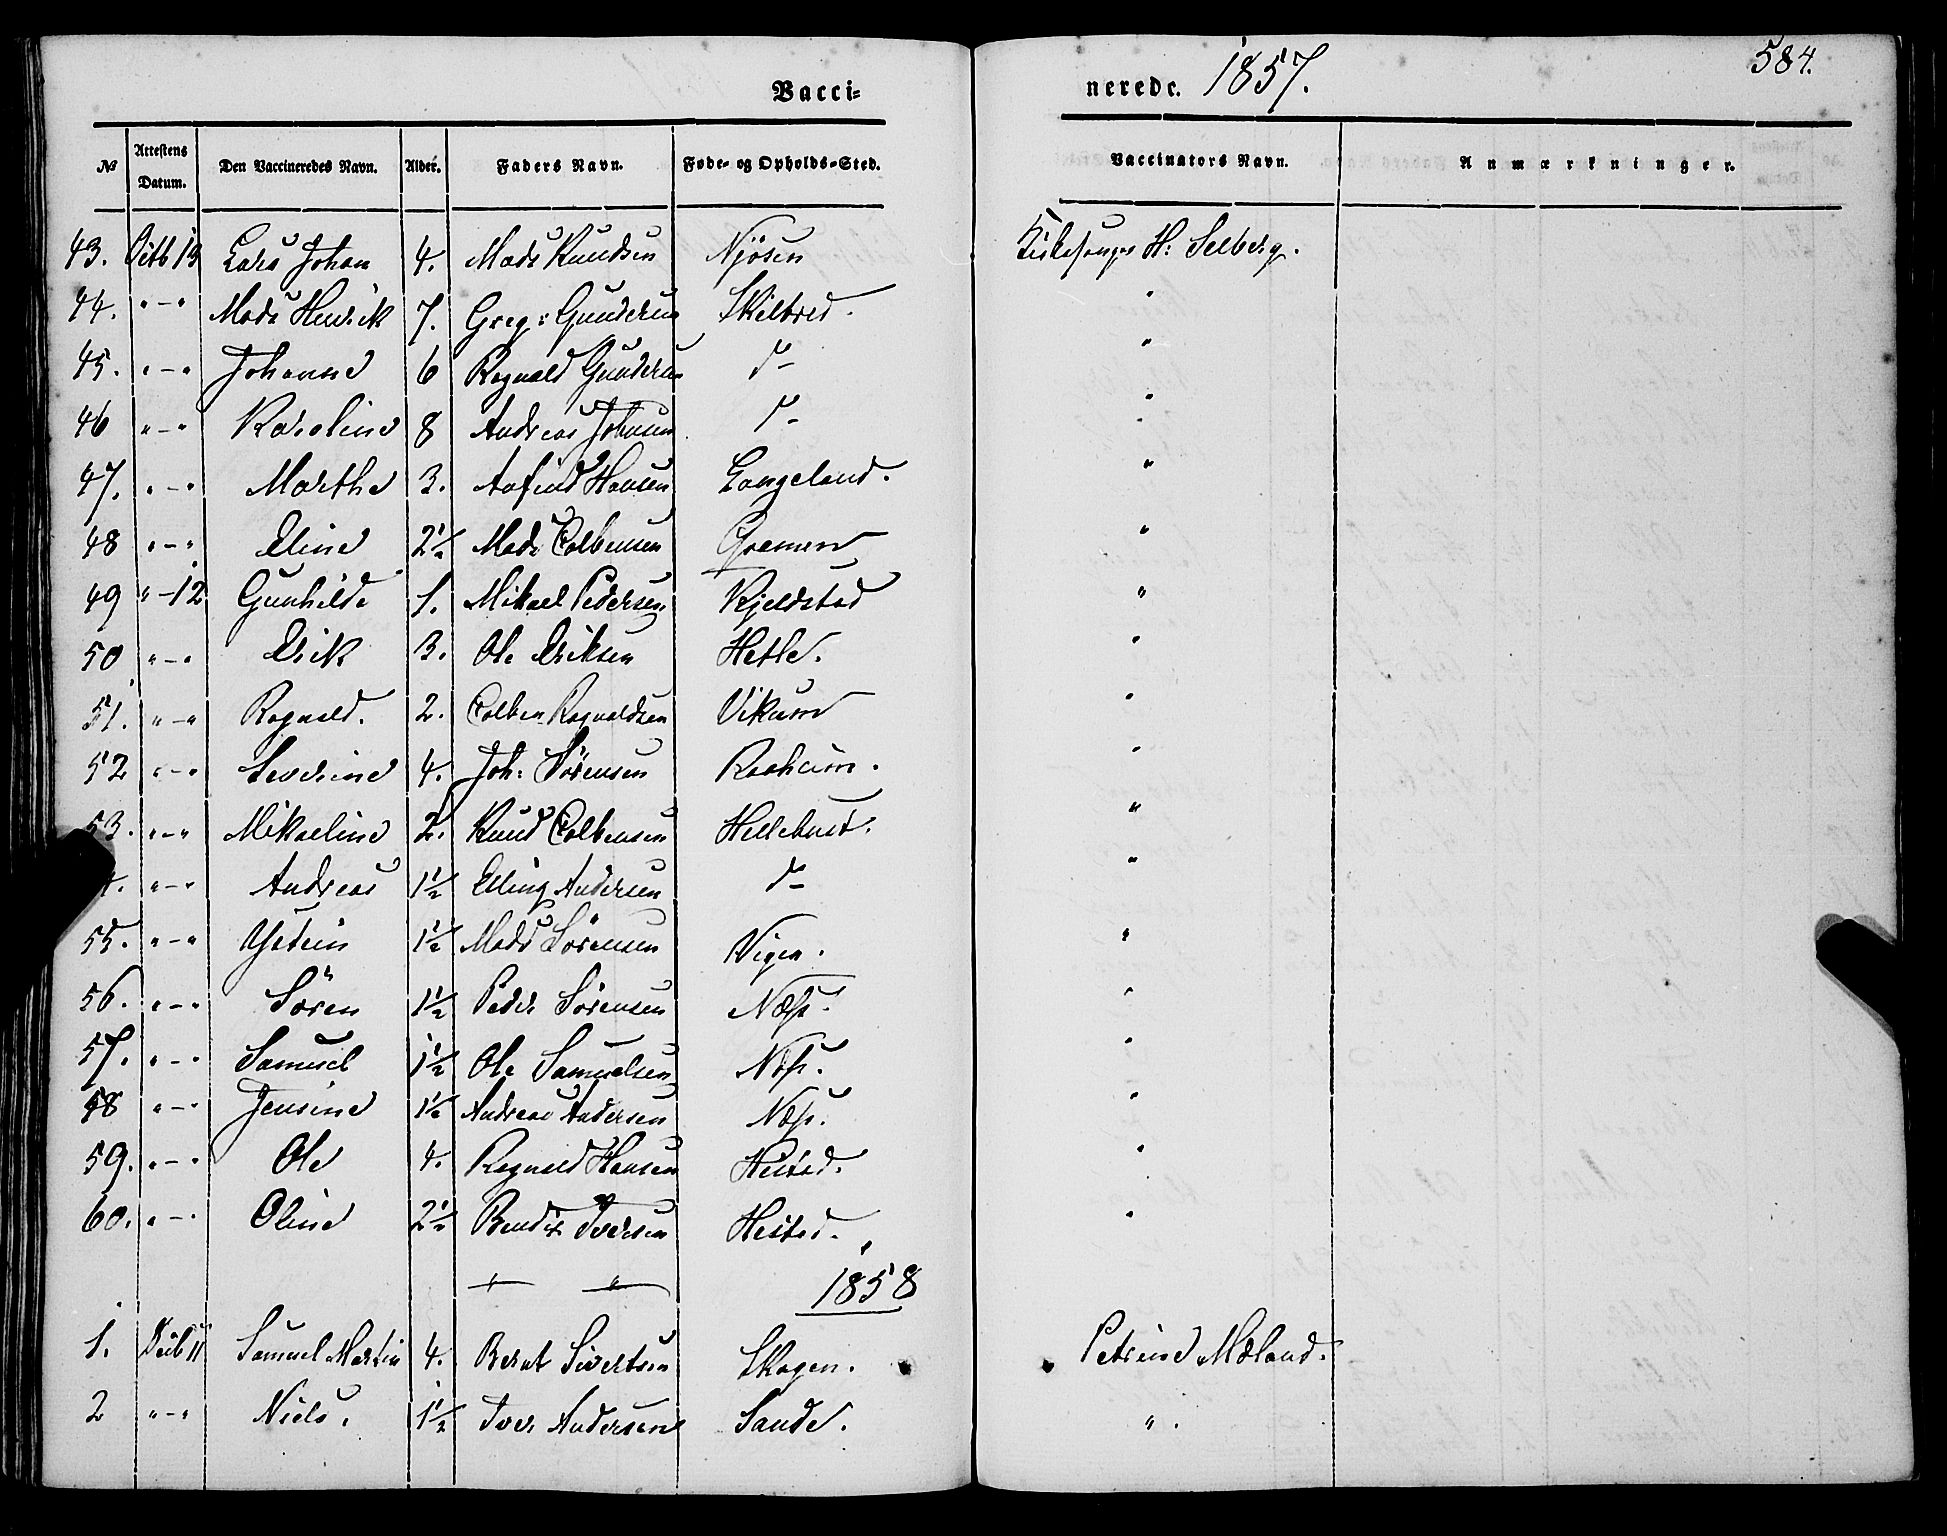 Vacci-
nerede. 1857.
584.
№ Attestens Datum. Den Vaccineredes Navn. Alder. Faders Navn. Føde- og Opholds-Sted. Vaccinators Navn. Anmærkninger.
43. Octb 13 Lars Johan 4. Mads Knudsen Njøsen Kirkesanger H: Selberg.
44. " - " Mads Henrik 7. Greg: Gundersen Skiltred. "
45. " - " Johanne 6 Ragnald Gundersen d- "
46 " - " Karoline 8 Andreas Johnsen d- "
47. " - " Marthe 3. Anfind Hansen Langeland. "
48 " - " Eline 2½ Mads Colbensen "
49 " - 12 Gunhilde 1. Mikael Pedersen Kjeldstad "
50 " - " Erik 3. Ole Eriksen Hetle. "
51. " - " Ragnald. 2. Colben Ragnaldsen Vikum "
52 " - " Severine 4. Joh: Sørensen Raaheim. "
53. " - " Mikaeline 2. Knud Colbensen Hellebust. "
" - " Andreas 1½ Elling Andersen d- "
55. " - " Ystein 1½ Mads Sørensen Vigen. "
56. " - " Søren 1½ Peder Sørensen Næss. "
57. " - " Samuel 1½ Ole Samuelsen Næss. "
58 " - " Jensine 1½ Andreas Andersen Næss. "
59. " - " Ole 4. Ragnald Hansen Hestad. "
60. " - " Oline 2½ Bendix Iversen Hestad. "
" " 1858
1. 11 Samuel Martin 4. Bernt Sivertsen Skogen. Petrine Mæland.
2 " - " Niels. 1½ Iver Andersen Sande. " .